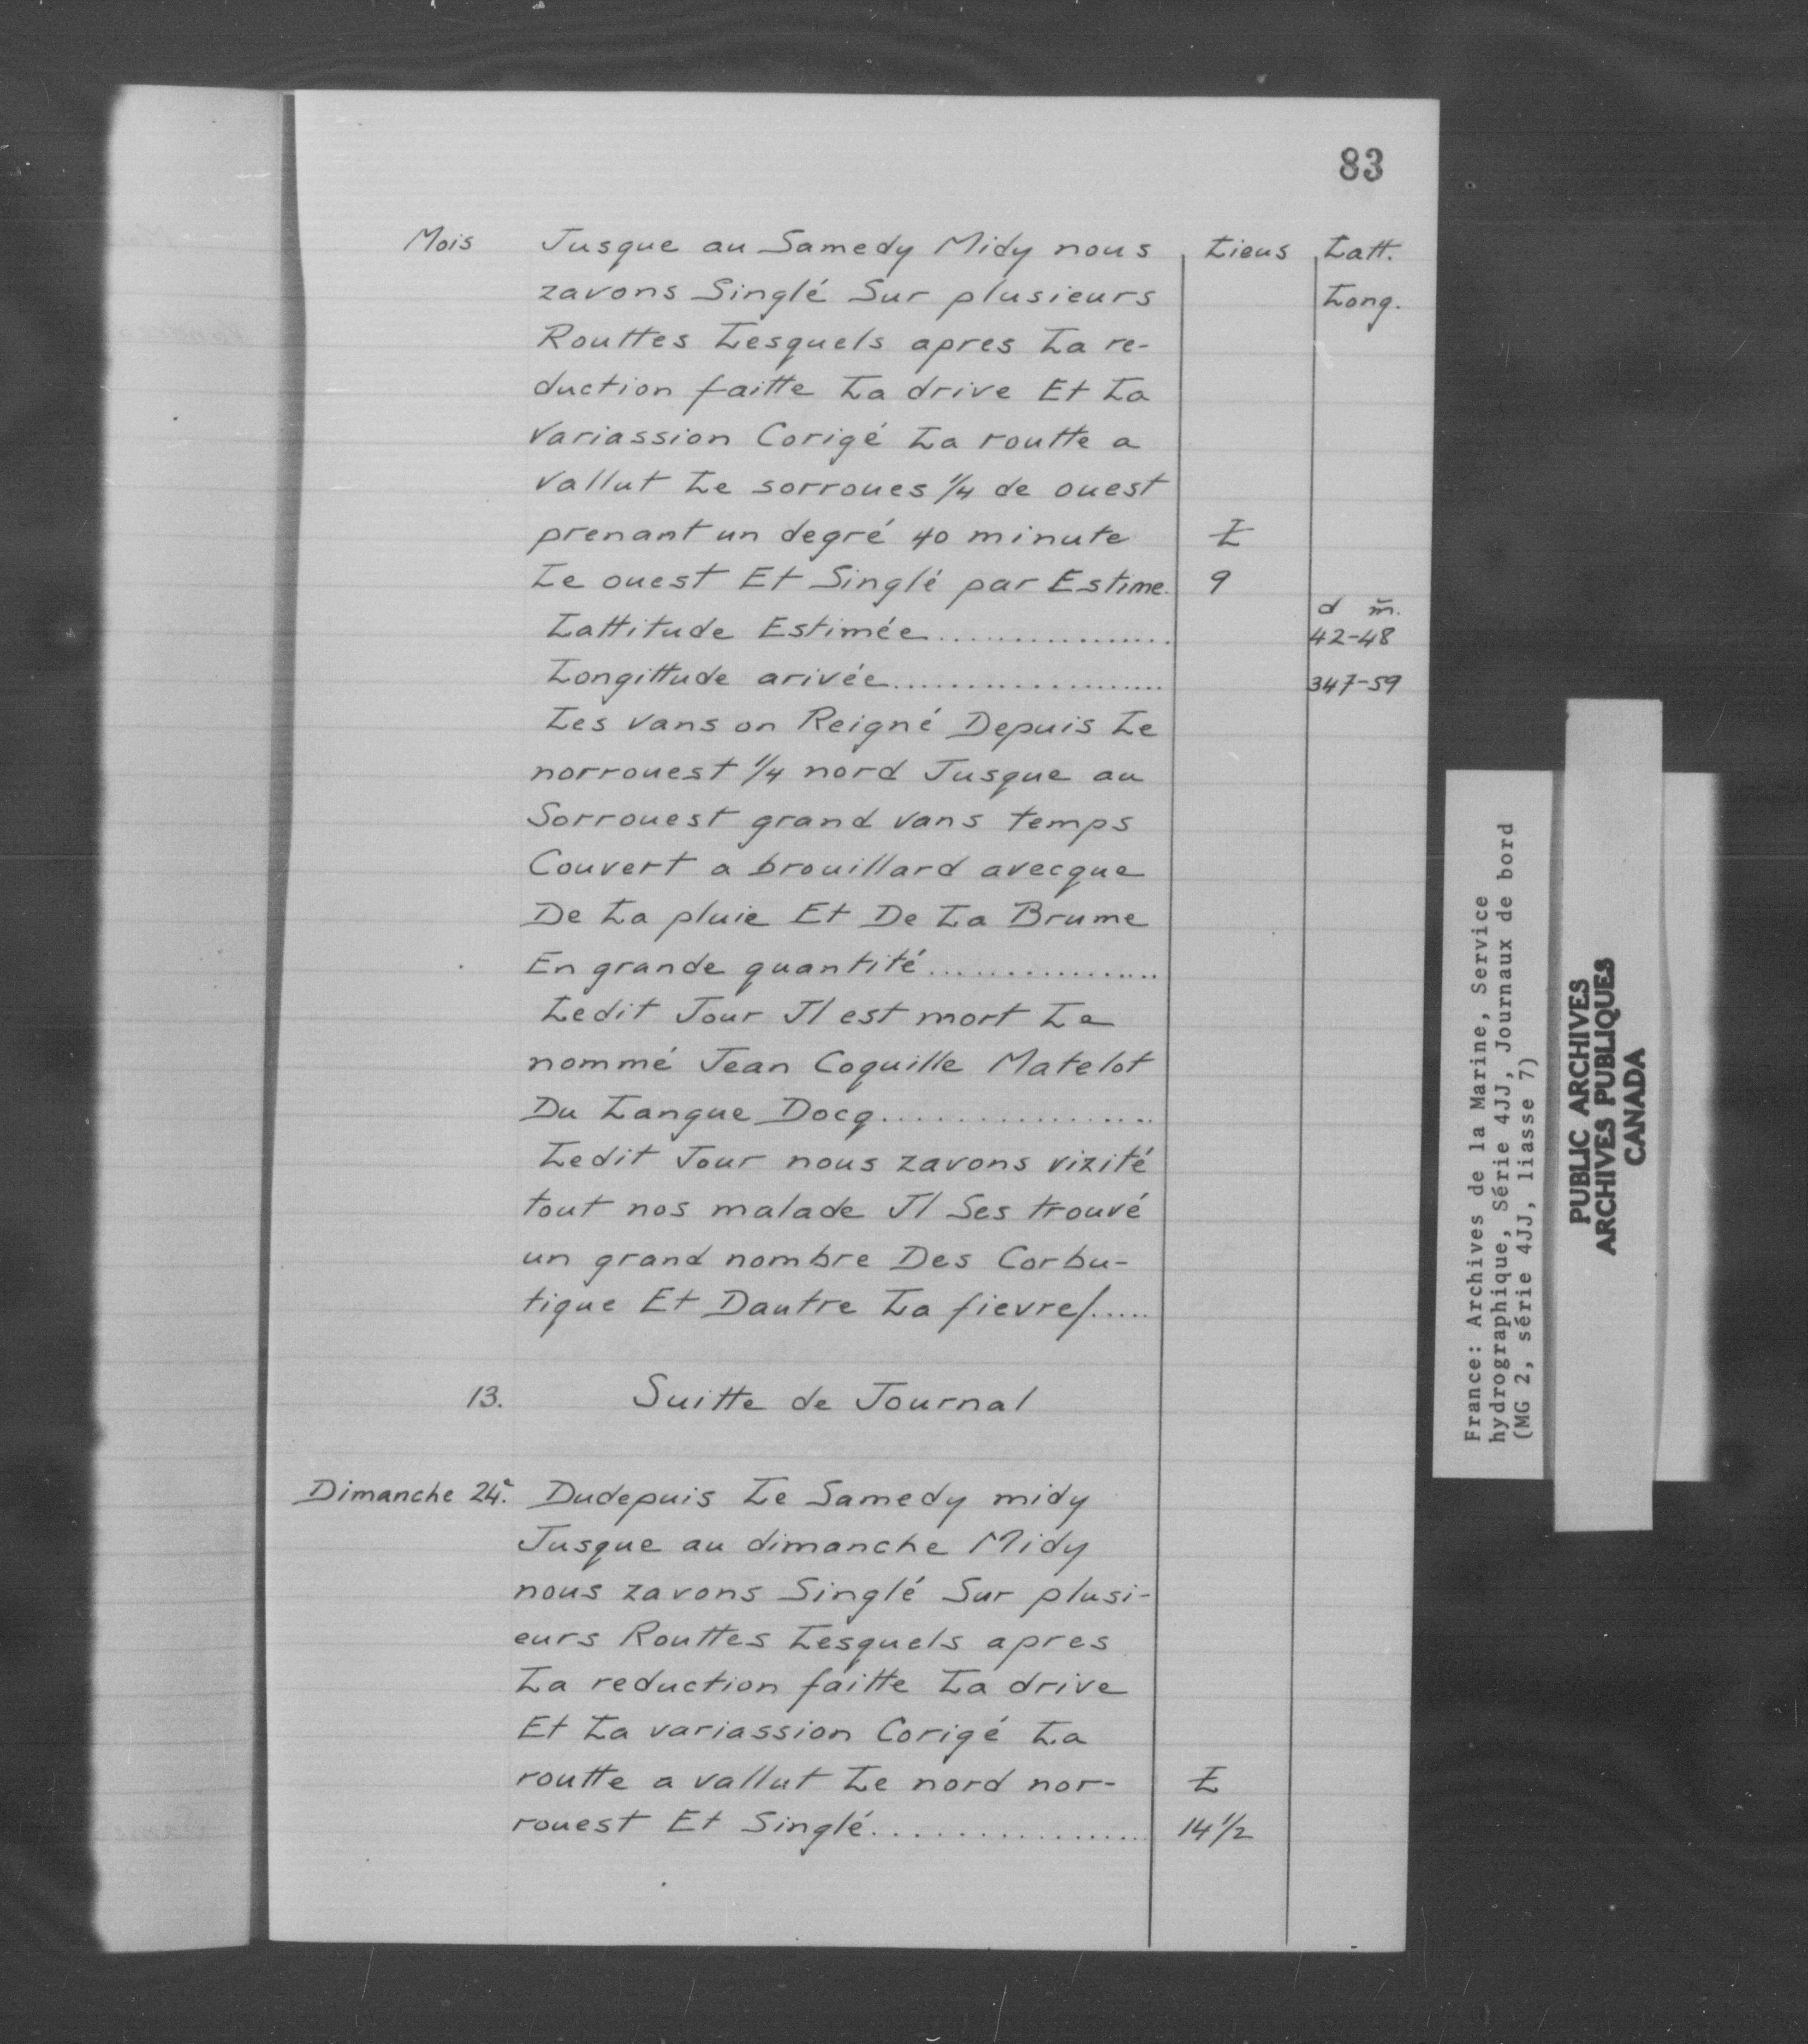 83
Mois Jusque au Samedy Midy nous Lieus Latt.
zavons Singlé Sur plusieurs Long.
Routtes Lesquels apres La re-
duction faitte La drive Et La
Variassion Corigé La routte a
vallut Le sorroues 1/4 de ouest
prenant un degré 40 minute L
Le ouest Et Singlé par Estime. 9
d m̃.
Lattitude Estimée................. 42-48
Longittude arivée.................... 347-59
Les vans on Reigné Depuis Le
norrouest 1/4 nord Jusque au
Sorrouest grand vans temps
Couvert a brouillard avecque
De La pluie Et De La Brume
En grande quantité................
Ledit Jour Jl est mort Le
nommé Jean Coquille Matelot
Du Langue Docq..................
Ledit Jour nous zavons vizité
tout nos malade Jl Ses trouvé
un grand nombre Des Corbu-
tique Et Dautre La fievre/.....
13. Suitte de Journal
Dimanche 24e. Dudepuis Le Samedy midy
Jusque au dimanche Midy
nous zavons Singlé Sur plusi-
eurs Routtes Lesquels apres
La reduction faitte La drive
Et La variassion Corigé La
routte a vallut Le nord nor- L
rouest Et Singlé.................. 14 1/2
France: Archives de la Marine, Service
hydrographique, Série 4JJ, Journaux de bord
(MG 2, série 4JJ, liasse 7)
PUBLIC ARCHIVES
ARCHIVES PUBLIQUES
CANADA